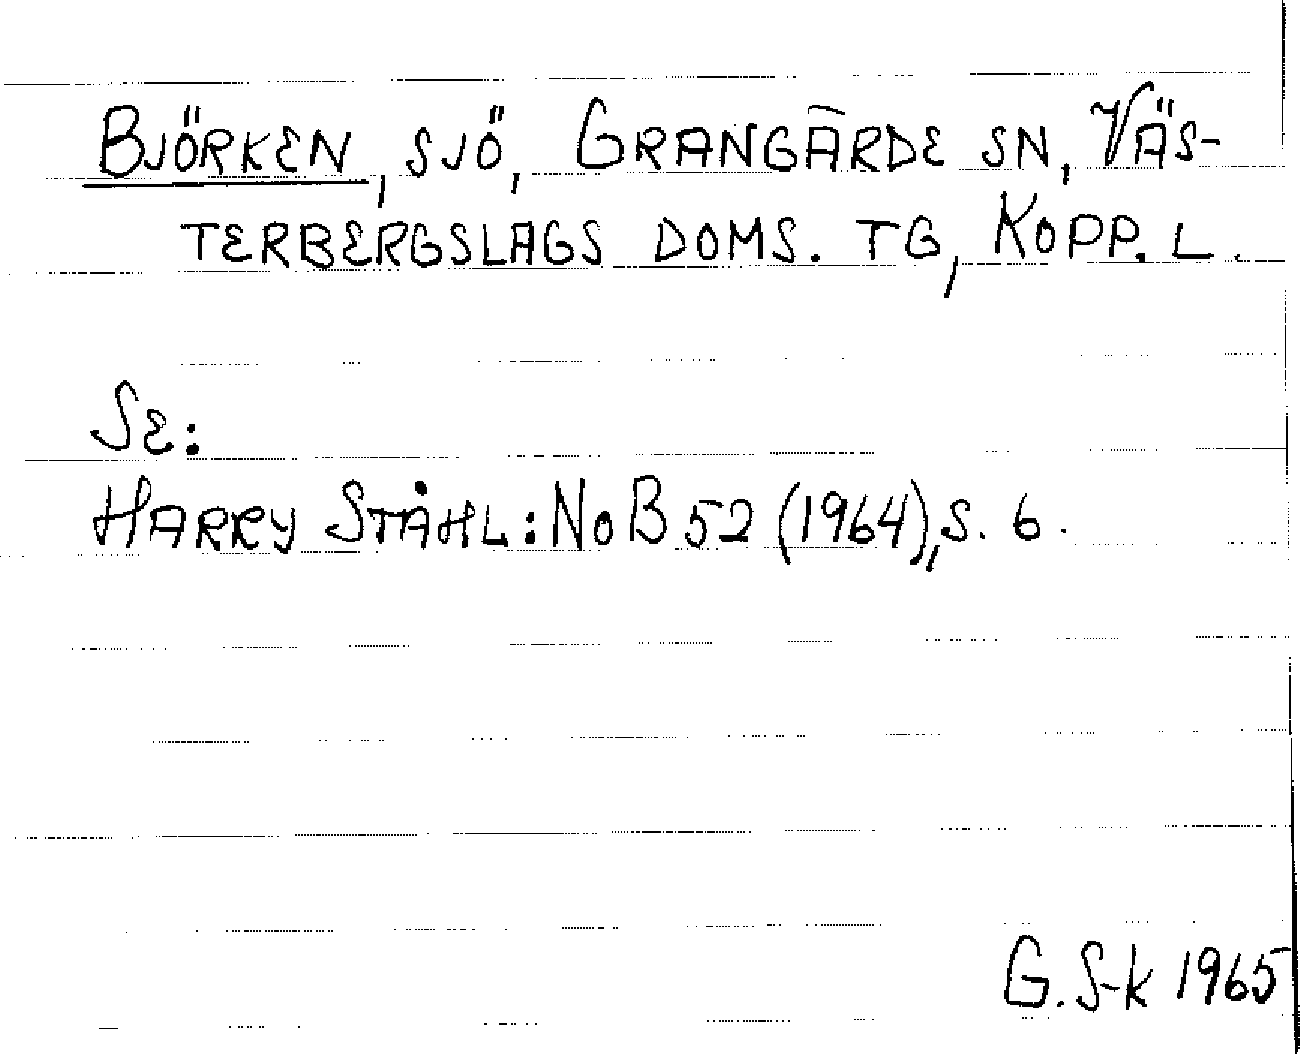 BJÖRKEN, SJÖ, GRANGÄRDE SN, VÄS-
TERBERGSLAGS DOMS. TG, KOPP. L.
SE:
HARRY STÅHL: NoB 52 (1964), S. 6.
G. S-k 1965